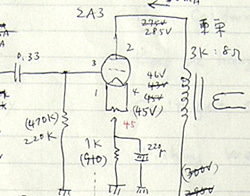 2A3
275V
285V
車車
3K : 8Ω
0.33
2
3
1
4
46V
43V
45V
(45V)
45
(470K)
220K
1K
(910)
220μ
(300V)